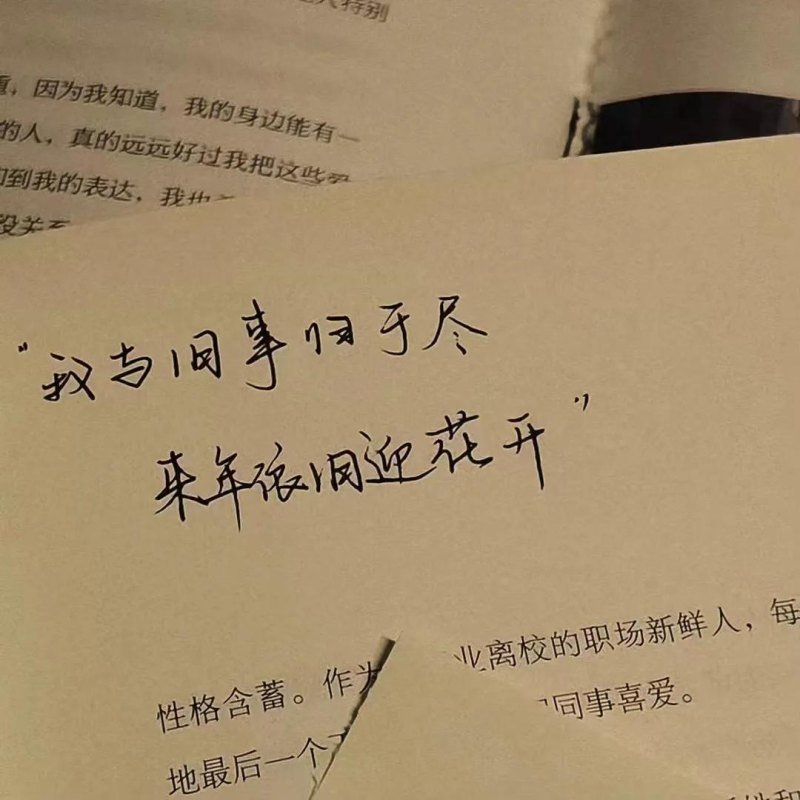 特别
因为我知道，我的身边能有一
的人，真的远远好过我把这些
到我的表达，我也
没关
“我与旧事归于尽
来年依旧迎花开”
业离校的职场新鲜人，每
性格含蓄。作为
同事喜爱。
地最后一个